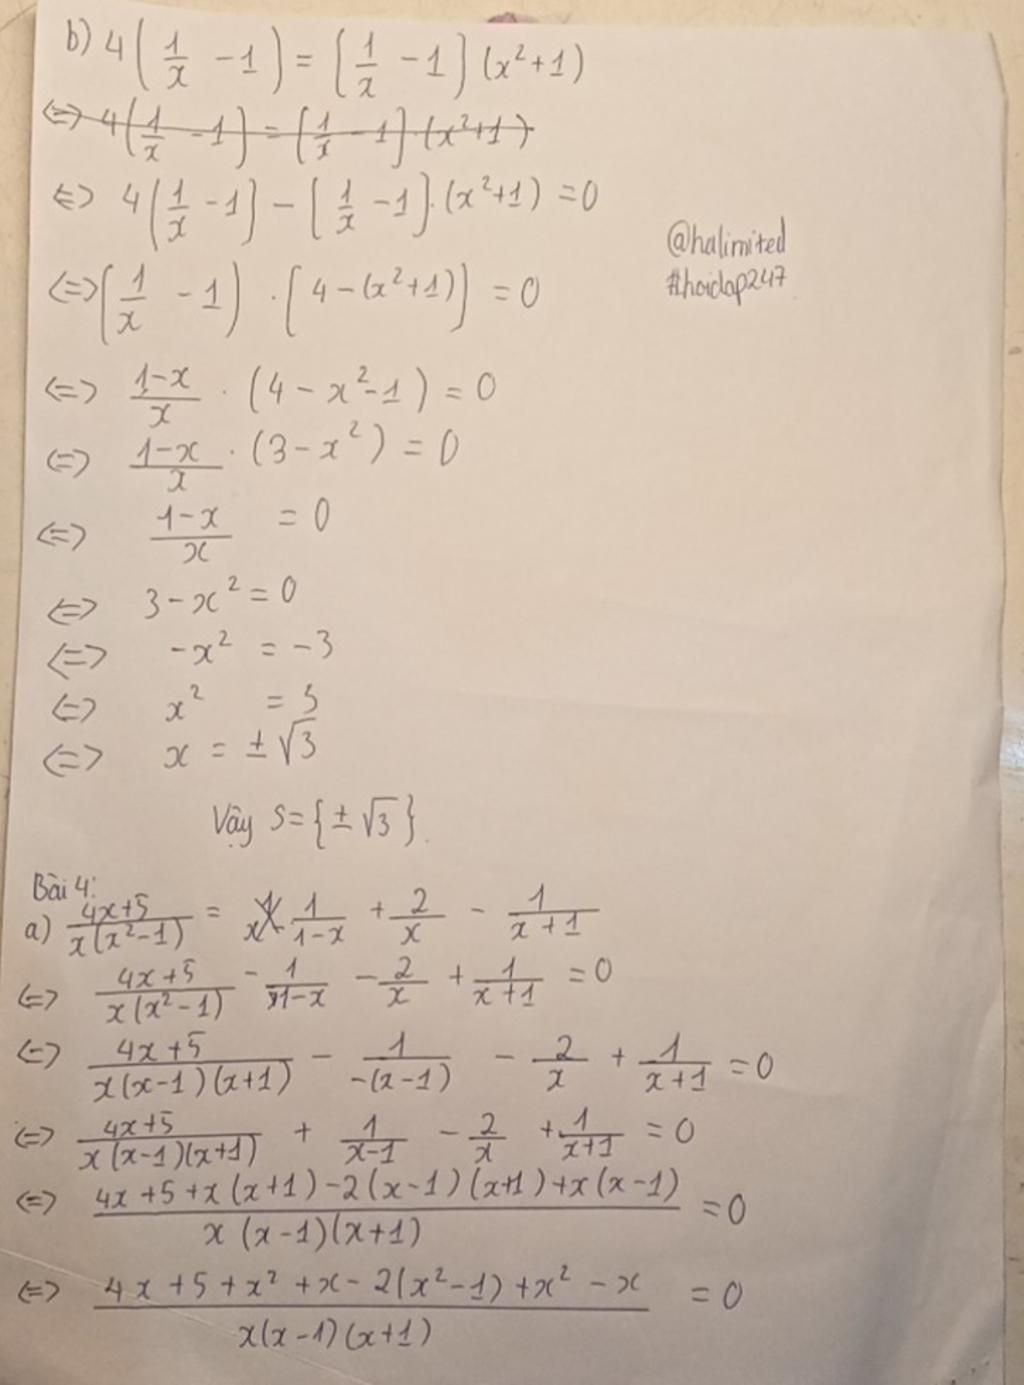 b) 4(1/x - 1) = [1/x - 1](x²+1)
<=> 4(1/x - 1] = [1/x - 1].(x²+1)
<=> 4(1/x - 1] - [1/x - 1].(x²+1) = 0
@halimited
#hoidap247
<=> (1/x - 1) . [4-(x²+1)] = 0
<=> (1-x)/x . (4 - x²-1) = 0
<=> (1-x)/x . (3 - x²) = 0
<=> (1-x)/x = 0
<=> 3 - x² = 0
<=> -x² = -3
<=> x² = 3
<=> x = ±√3
Vậy S={±√3}.
Bài 4:
a) (4x+5)/(x(x²-1)) = 1/(1-x) + 2/x - 1/(x+1)
<=> (4x+5)/(x(x²-1)) - 1/(1-x) - 2/x + 1/(x+1) = 0
<=> (4x+5)/(x(x-1)(x+1)) - 1/(-(x-1)) - 2/x + 1/(x+1) = 0
<=> (4x+5)/(x(x-1)(x+1)) + 1/(x-1) - 2/x + 1/(x+1) = 0
<=> (4x+5+x(x+1)-2(x-1)(x+1)+x(x-1))/(x(x-1)(x+1)) = 0
<=> (4x+5+x²+x-2(x²-1)+x²-x)/(x(x-1)(x+1)) = 0